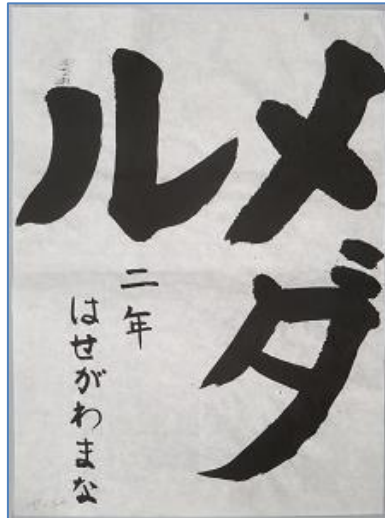 メダ
ル
二年
はせがわまな